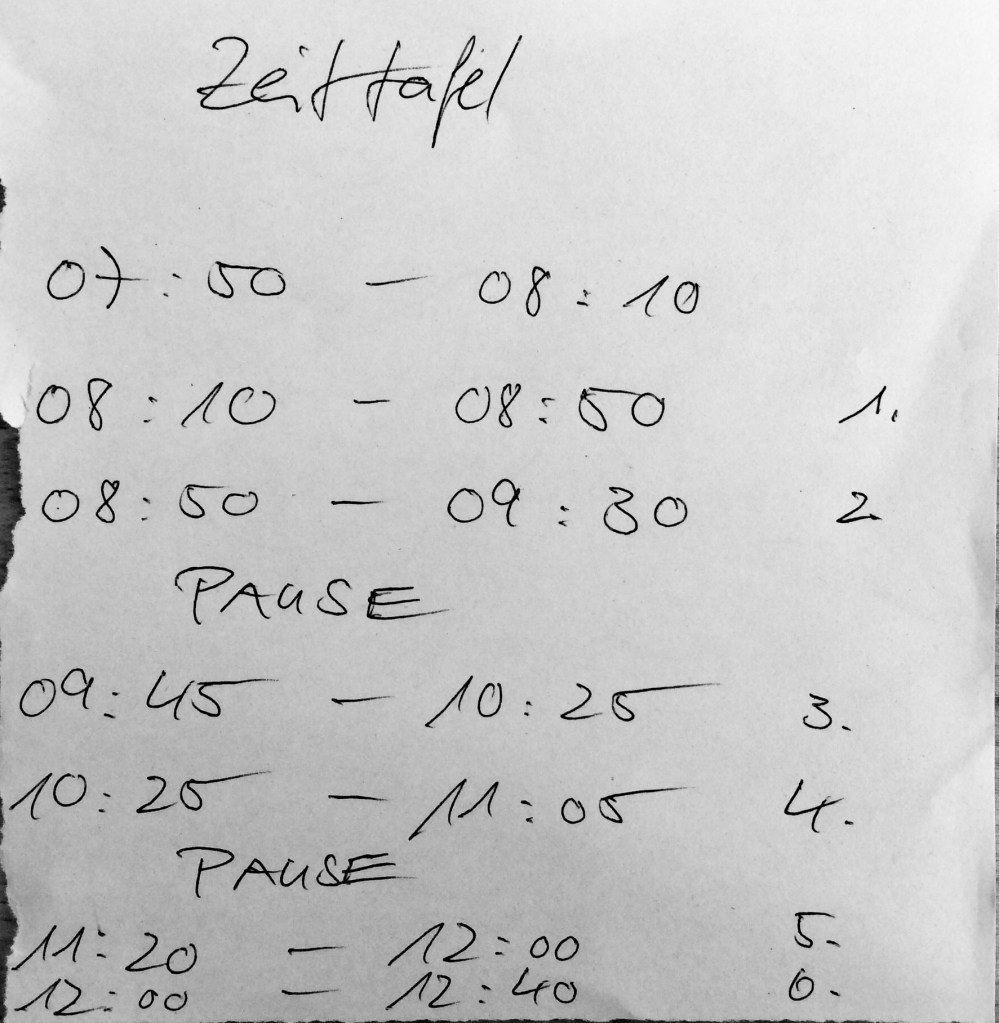 Zeittafel
07:50 – 08:10
08:10 – 08:50 1.
08:50 – 09:30 2
PAUSE
09:45 – 10:25 3.
10:25 – 11:05 4.
PAUSE
11:20 – 12:00 5.
12:00 – 12:40 6.